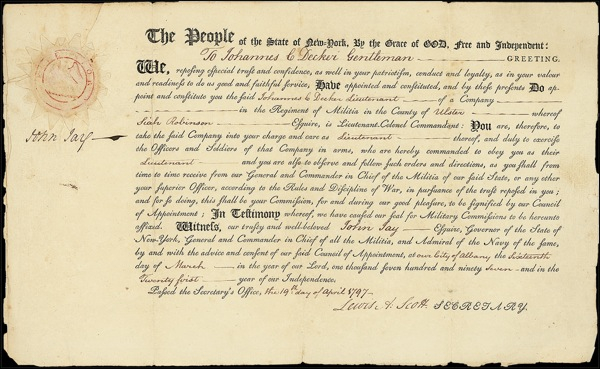 The People of the State of New-York, By the Grace of GOD, Free and Independent:
To Johannes C Decker Gentleman GREETING.
We, reposing especial trust and confidence, as well in your patriotism, conduct and loyalty, as in your valour
and readiness to do us good and faithful service, Have appointed and constituted, and by these presents Do ap-
point and constitute you the said Johannes C Decker Lieutenant of a Company
in the Regiment of Militia in the County of Ulster whereof
Robinson Esquire, is Lieutenant-Colonel Commandant: You are, therefore, to
take the said Company into your charge and care as Lieutenant thereof, and duly to exercise
the Officers and Soldiers of that Company in arms, who are hereby commanded to obey you as their
Lieutenant and you are also to observe and follow such orders and directions, as you shall from
time to time receive from our General and Commander in Chief of the Militia of our said State, or any other
your Superior Officer, according to the Rules and Discipline of War, in pursuance of the trust reposed in you;
and for so doing, this shall be your Commission, for and during our good pleasure, to be signified by our Council
of Appointment: In Testimony whereof, we have caused our seal for Military Commissions to be hereunto
affixed. Witness, our trusty and well-beloved John Jay Esquire, Governor of the State of
New-York, General and Commander in Chief of all the Militia, and Admiral of the Navy of the same,
by and with the advice and consent of our said Council of Appointment, at our City of Albany, the Sixteenth
day of March in the year of our Lord, one thousand seven hundred and ninety Seven and in the
Twenty first year of our Independence.
Passed the Secretary's Office, the 19th day of April 1797.
Lewis A. Scott SECRETARY.
John Jay